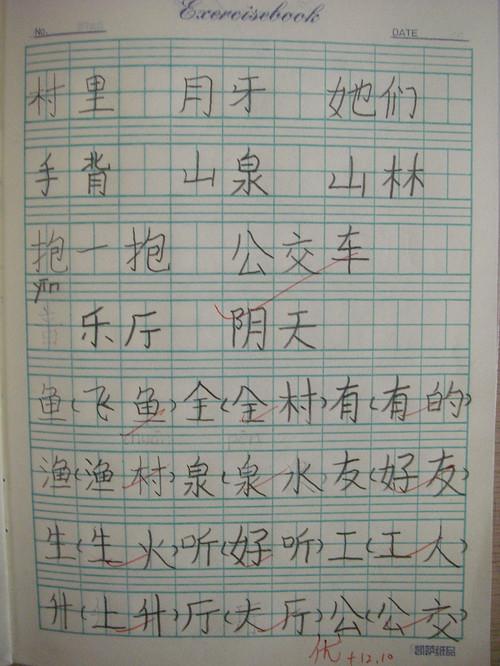 Exercisebook
No. DATE
村里 月牙 她们
手背 山泉 山林
抱一抱 公交车
yīn
乐厅 阴天
鱼(飞鱼)全(全村)有(有的)
渔(渔村)泉(泉水)友(好友)
生(生火)听(好听)工(工人)
升(上升)厅(大厅)公(公交)
优 +12.10